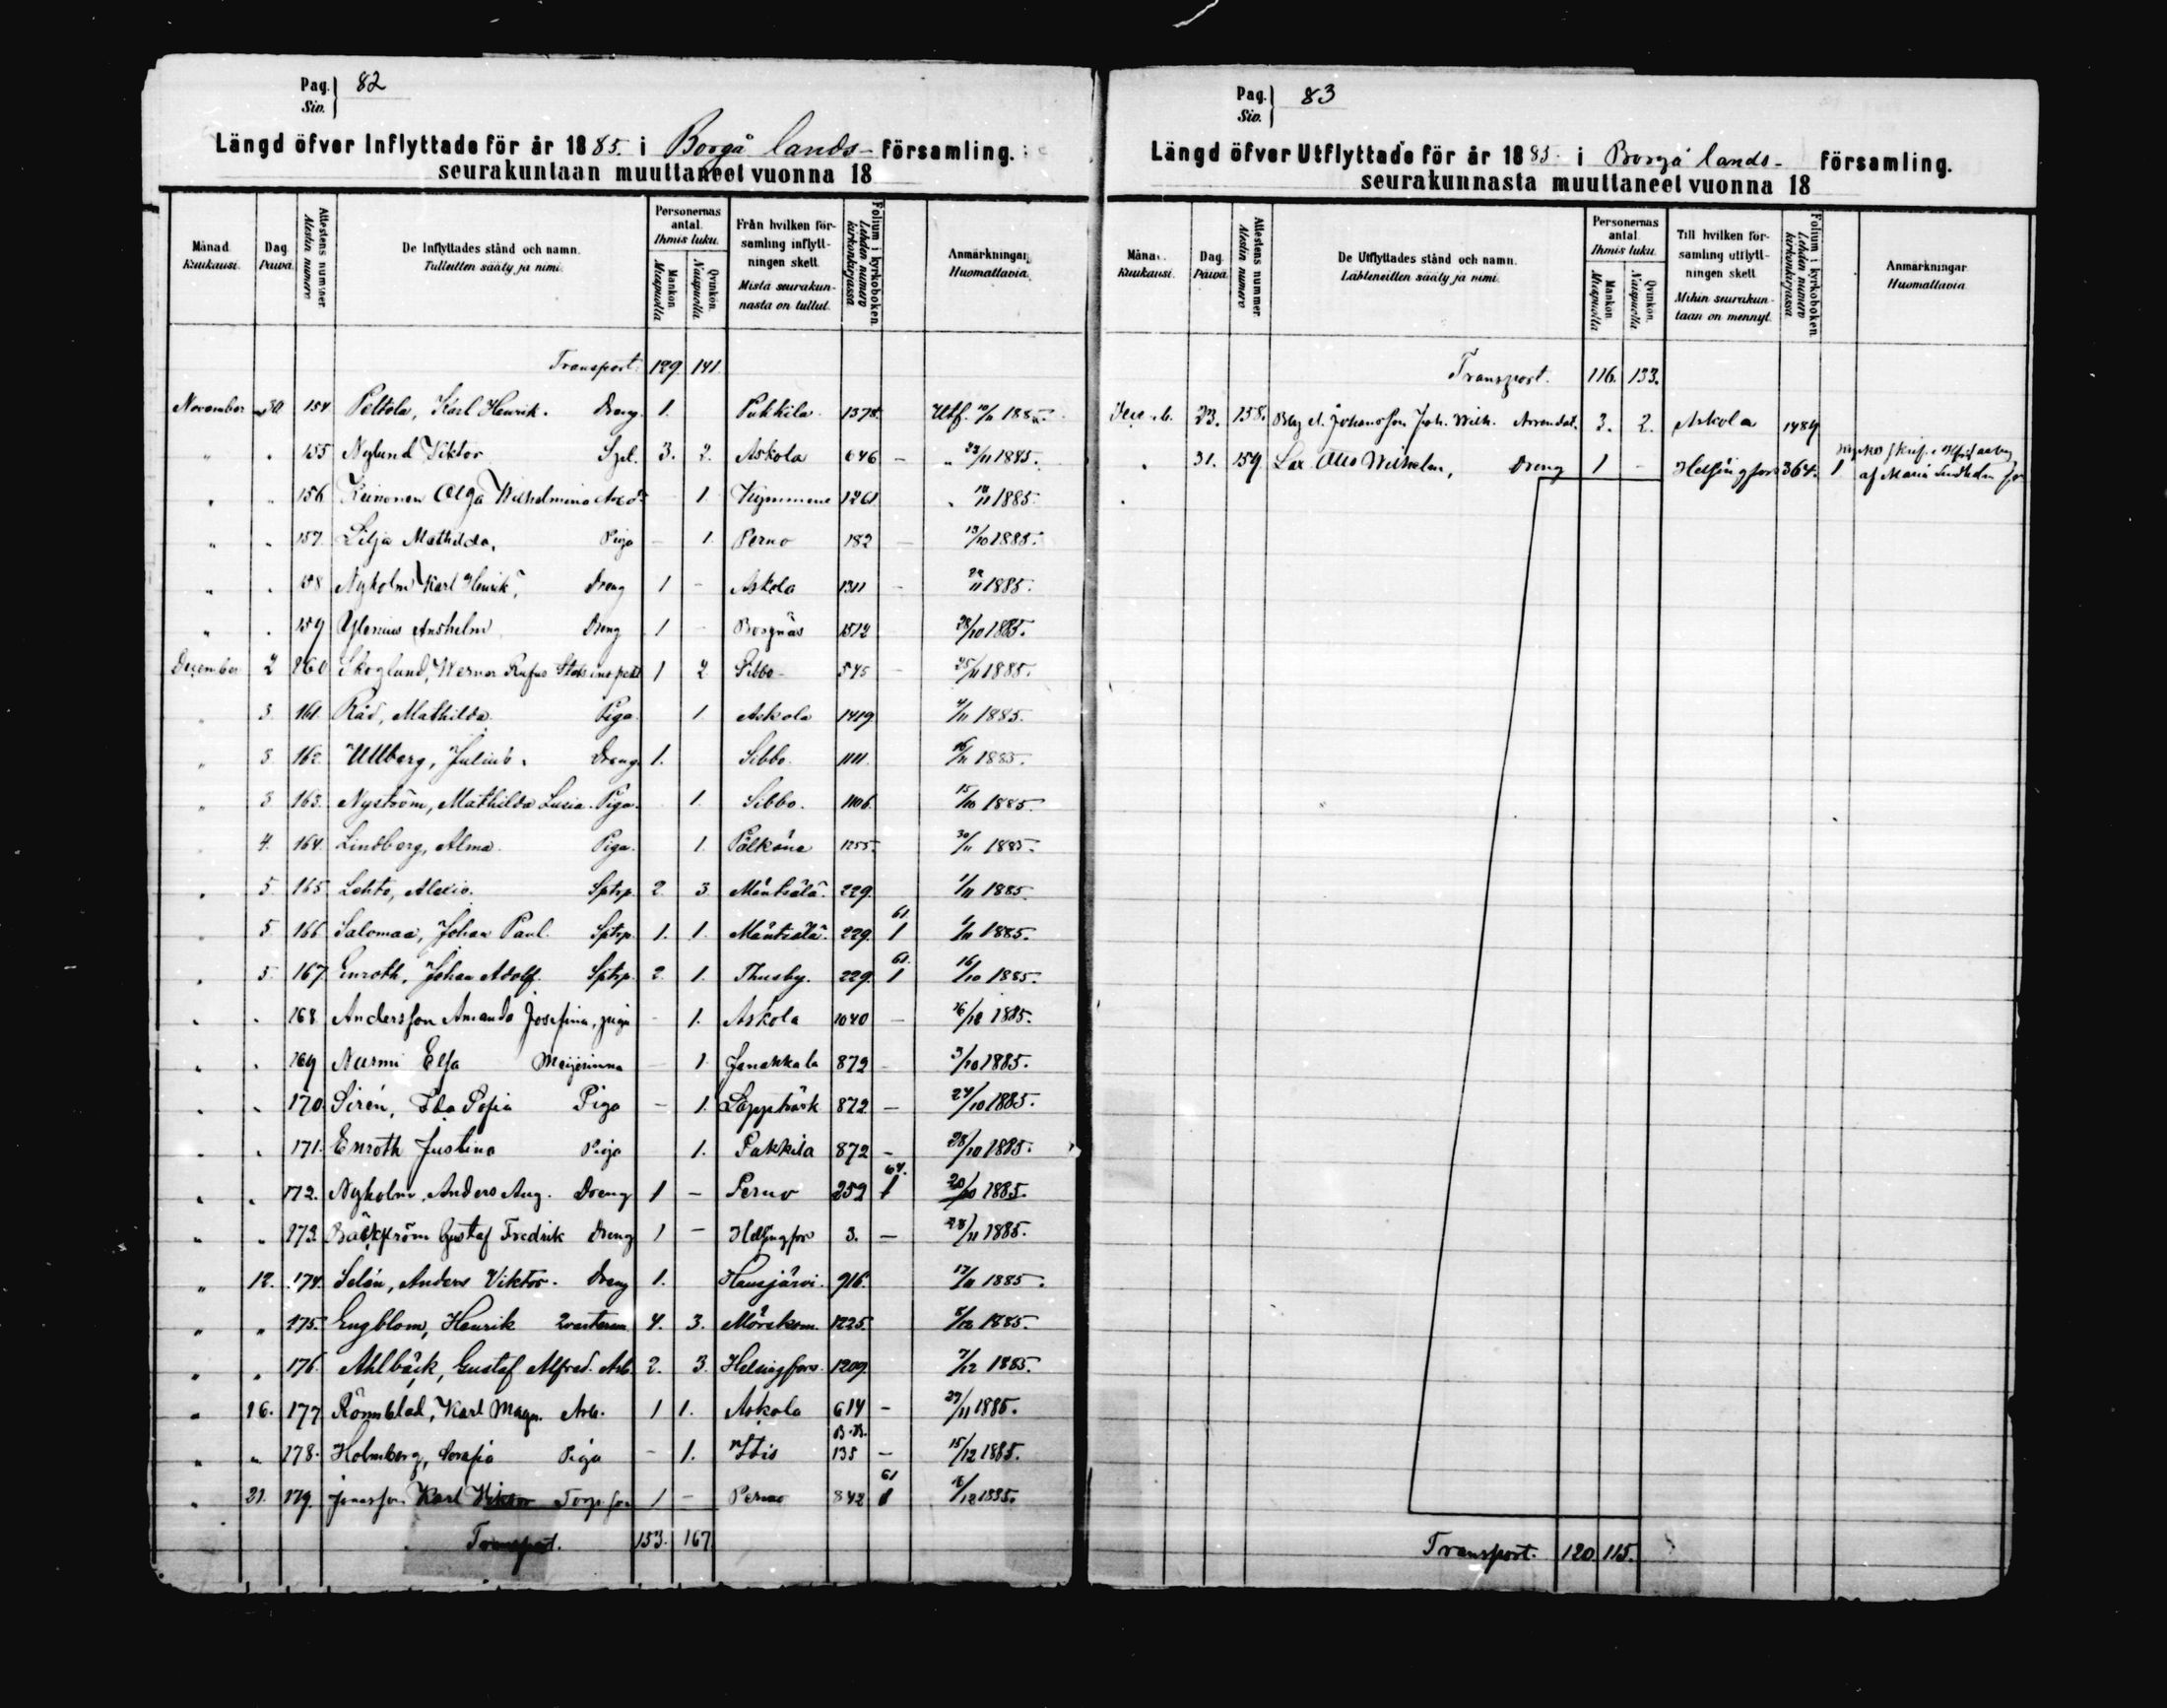 Pag. 82
Siv.
Längd öfver Inflyttade för år 1885. i Borgå lands- församling.
seurakuntaan muuttaneet vuonna 18
Månad. Kuukausi.
Dag. Päivä.
Attestens nummer. Atestin numero
De Inflyttades stånd och namn. Tulleitten sääty ja nimi.
Personernas antal. Ihmis luku.
Mankön. Miespuolia
Qvinkön. Naispuolia
Från hvilken församling inflyttningen skett. Mistä seurakunnasta on tullut.
Folium i kyrkoboken. Lehden numero kirkonkirjassa
Anmärkningar. Huomattavia.
Transport. 129. 141.
November 30 154 Peltola, Karl Henrik. Dreng. 1. Pukkila 1378. Utf. 1885.
" . 155 Nylund Viktor 3. 2. Askola 646 - " 23/11 1885.
" " 156 Olga Wilhelmina 1. Kymmene 1261 " 1885.
" " 157. Lilja Mathilda, Piga - 1. Perno 182 - 13/10 1885.
" " 158 Nyholm Karl Henrik, Dreng 1 - Askola 1311 - 1885.
" . 159 Anshelm Dreng 1 - Borgnäs 1512 28/10 1885.
December 2 160 Skoglund, Werner Rufus 1 2 Sibbo 545 - 25/11 1885.
" 3. 161. Råd, Mathilda. Piga. 1. Askola 1419. 4/11 1885.
" 3 162. Ullberg, Julius. Dreng. 1. Sibbo. 1111. 16/11 1885.
" 3 163. Nyström, Mathilda Lusia. Piga. 1. Sibbo. 1106. 15/10 1885.
" 4. 164. Lindberg, Alma. Piga. 1. Pälkäne 1255. 30/11 1885.
" 5. 165 Lehto, Alexis. Sptrp. 2. 3. Mäntsälä. 229. 1/11 1885.
" 5. 166 Salomaa, Johan Paul. Sptrp. 1. 1. Mäntsälä. 229. 61. 1 1885.
" 5. 167. Enroth, Johan Adolf. Sptrp. 2. 1. Thusby. 229. 61. 1 16/10 1885.
" " 168 Andersson Amanda Josefina, piga - 1. Askola 1040 - 1885.
" " 169 Nurmi Elsa Meijerinna - 1. Janakkala 872 - 3/10 1885.
" " 170. Sirén, Ida Sofia Piga - 1. Lappträsk 872 - 24/10 1885.
" " 171. Enroth Justina Piga 1. Pukkila 872 - 28/10 1885.
" " 172. Nyholm, Anders Aug. Dreng 1 - Perno 252 64. 1 20/10 1885.
" " 173. Bäckström Gustaf Fredrik Dreng 1 - Helsingfors 3. - 28/11 1885.
" 12. 174. Selin, Anders Viktor. Dreng 1. Hausjärvi. 916. 17/11 1885.
" " 175. Engblom, Henrik 4. 3. Mörskom. 1225. 8/12 1885.
" " 176. Ahlbäck, Gustaf Alfred. Arb. 2. 3. Helsingfors. 1209. 7/12 1885.
" 16. 177 Rönnblad, Karl Magn. Arb. 1 1. Askola 614 - 27/11 1885.
" " 178. Holmberg, Serafia Piga - 1. Itis 135 - 15/12 1885.
" 21. 179. Jonsson Karl Viktor Torp. son 1 - Perno 842 61 1 1885.
Transport. 153. 167.
Pag. 83
Siv.
Längd öfver Utflyttade för år 1885. i Borgå lands- församling.
seurakunnasta muuttaneet vuonna 18
Månad. Kuukausi.
Dag. Päivä.
Attestens nummer. Atestin numero
De Utflyttades stånd och namn. Lähteneitten sääty ja nimi.
Personernas antal. Ihmis luku.
Mankön. Miespuolia
Qvinkön. Naispuolia
Till hvilken församling utflyttningen skett. Mihin seurakuntaan on mennyt.
Folium i kyrkoboken. Lehden numero kirkonkirjassa
Anmärkningar. Huomattavia.
Transport. 116. 133.
Decemb. 23. 158. Johansson Joh. Wilh. 3. 2. Askola 1484
" 31. 159 Lax Otto Wilhelm, Dreng 1 - Helsingfors 364. 1 af Maria Lindholm
Transport. 120 115.